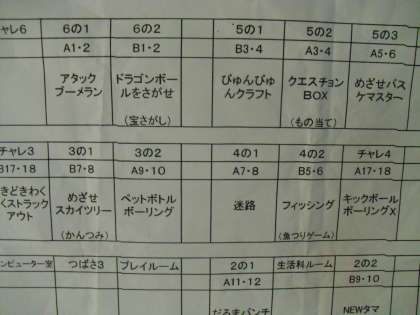 チャレ6 6の1 6の2 5の1 5の2 5の3
A1・2 B1・2 B3・4 A3・4 A5・6
アタック ドラゴンボー びゅんびゅ クエスチョン めざせバス
ブーメラン ルをさがせ んクラフト BOX ケマスター
(宝さがし) (もの当て)
チャレ3 3の1 3の2 4の1 4の2 チャレ4
B17・18 B7・8 A9・10 A7・8 B5・6 A17・18
きどきわく めざせ ペットボトル 迷路 フィッシング キックボール
くストラック スカイツリー ボーリング ボーリングX
アウト (かんつみ) (魚つりゲーム)
ンピューター室 つばさ3 プレイルーム 2の1 生活科ルーム 2の2
A11・12 B9・10
だるまパンチ NEWタマ